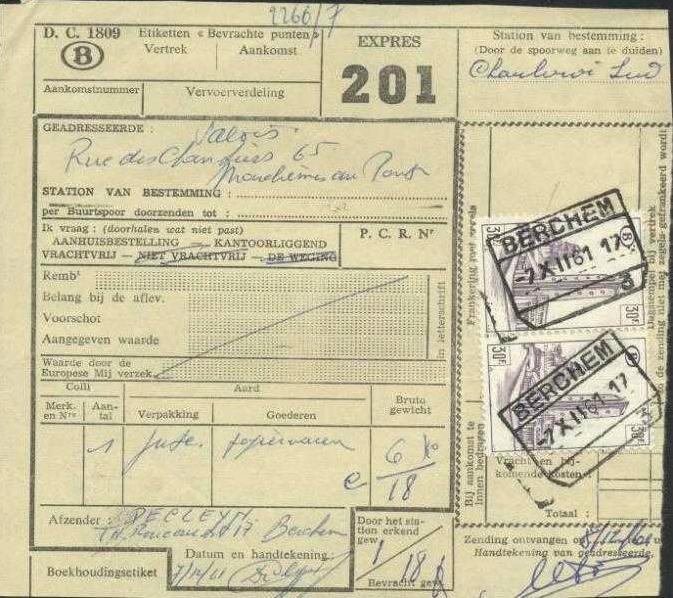 2266/7
D. C. 1809
B
Etiketten « Bevrachte punten »
Vertrek
Aankomst
Aankomstnummer
Vervoerverdeling
EXPRES
201
Station van bestemming :
(Door de spoorweg aan te duiden)
Charleroi Sud
GEADRESSEERDE :
Valois
Rue des 65
Marchiennes au Pont
STATION VAN BESTEMMING :
per Buurtspoor doorzenden tot :
Ik vraag : (doorhalen wat niet past)
AANHUISBESTELLING — KANTOORLIGGEND
VRACHTVRIJ — NIET VRACHTVRIJ — DE WEGING
P. C. R. Nr
Rembt
Belang bij de aflev.
Voorschot
Aangegeven waarde
Waarde door de
Europese Mij verzek.
in letterschrift
Colli
Aard
Merk.
en Nrs
Aan-
tal
Verpakking
Goederen
Bruto
gewicht
1
papierwaren
6
18
Afzender :
DECLEYT
17 Berchem
Datum en handtekening :
7/12/61
Boekhoudingsetiket
Door het sta-
tion erkend
gew.
1
18
Bevracht gew.
Frankering voor
Dagstempel bij vertrek
zending niet met zegels gefrankeerd wordt
30F
B
BERCHEM
-7 XII 61 17
3
30F
B
BERCHEM
-7 XII 61 17
Bij aankomst te
innen bedragen
Vracht en bij-
komende kosten :
Totaal :
Zending ontvangen op
Handtekening van geadresseerde,